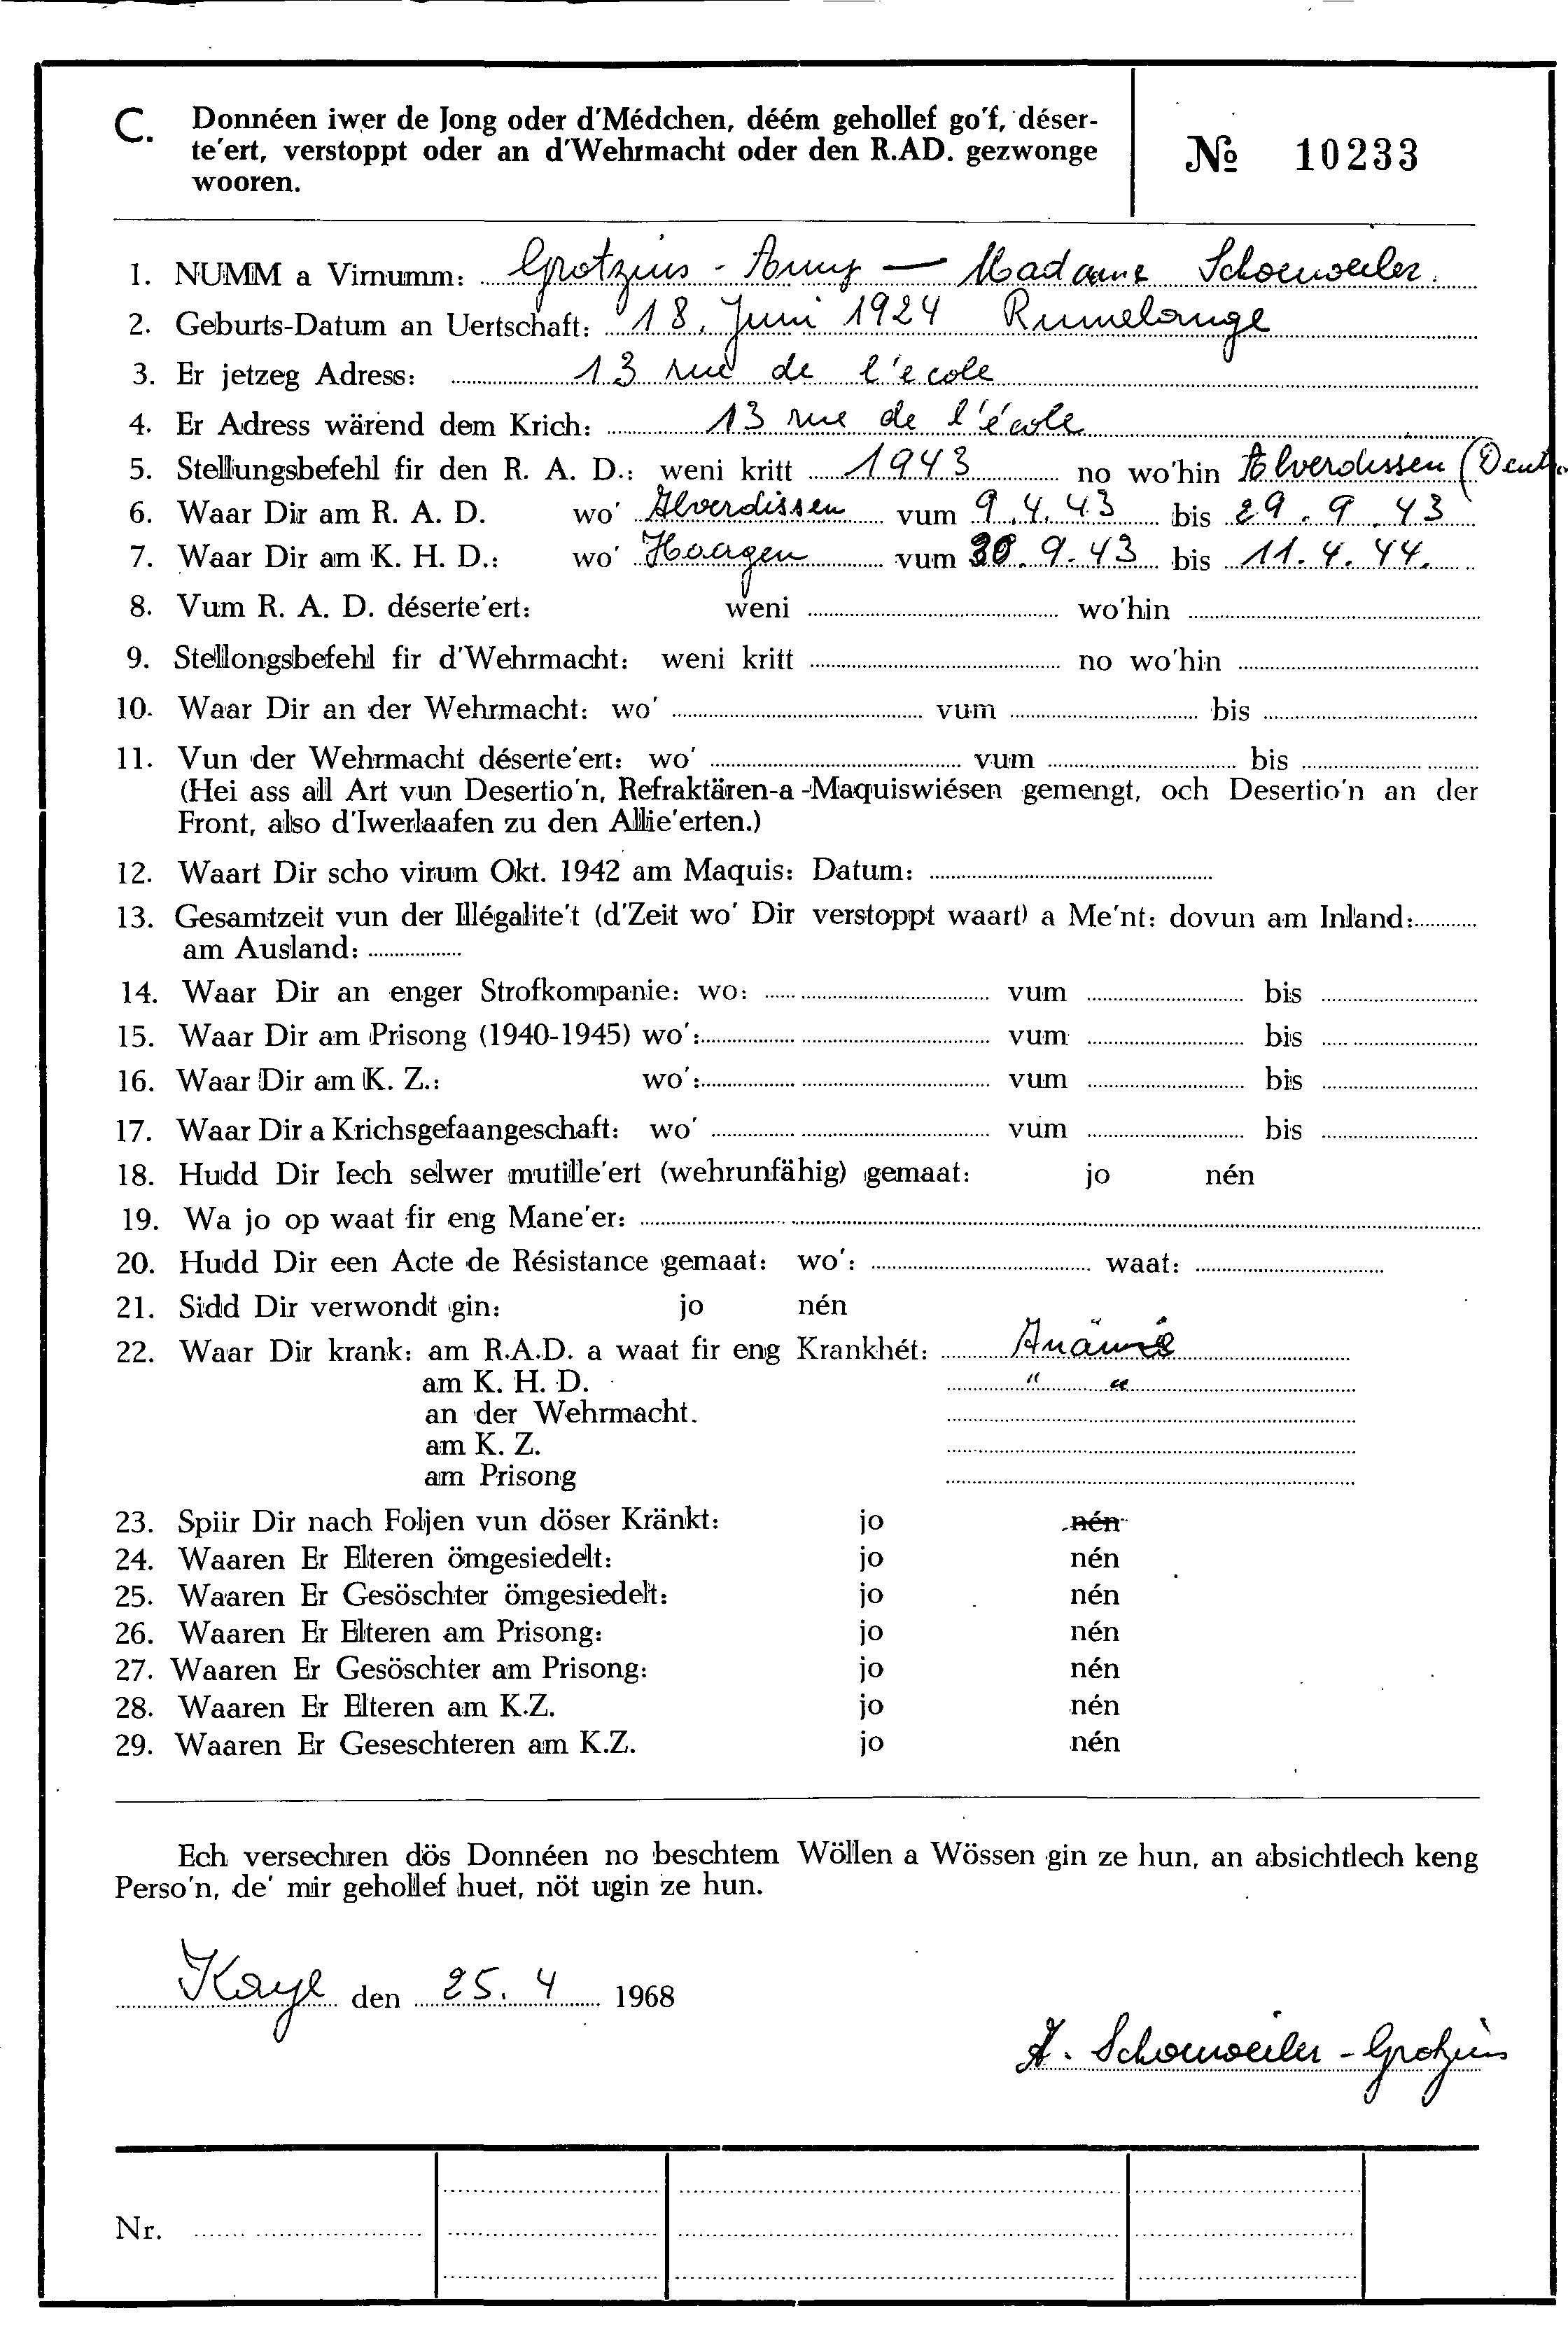 C. Donnéen iwer de Jong oder d'Médchen, déém gehollef go'f, déser-
te'ert, verstoppt oder an d'Wehrmacht oder den R.AD. gezwonge
wooren.
№ 10233
1. NUMM a Virnumm: Grotzius - Anny — Madame Schoenweiler.
2. Geburts-Datum an Uertschaft: 18. Juni 1924 Rumelange
3. Er jetzeg Adress: 13 rue de l'ecole
4. Er Adress wärend dem Krich: 13 rue de l'école
5. Stellungsbefehl fir den R. A. D.: weni kritt 1943 no wo'hin Alverdissen (Deut.
6. Waar Dir am R. A. D. wo' Alverdissen vum 9.4.43 bis 29.9.43
7. Waar Dir am K. H. D.: wo' Haagen vum 30.9.43 bis 11.4.44.
8. Vum R. A. D. déserte'ert: weni wo'hin
9. Stellongsbefehl fir d'Wehrmacht: weni kritt no wo'hin
10. Waar Dir an der Wehrmacht: wo' vum bis
11. Vun der Wehrmacht déserte'ert: wo' vum bis
(Hei ass all Art vun Desertio'n, Refraktären-a-Maquiswiésen gemengt, och Desertio'n an der
Front, also d'Iwerlaafen zu den Allie'erten.)
12. Waart Dir scho virum Okt. 1942 am Maquis: Datum:
13. Gesamtzeit vun der Illégalite't (d'Zeit wo' Dir verstoppt waart) a Me'nt: dovun am Inland:
am Ausland:
14. Waar Dir an enger Strofkompanie: wo: vum bis
15. Waar Dir am Prisong (1940-1945) wo': vum bis
16. Waar Dir am K. Z.: wo': vum bis
17. Waar Dir a Krichsgefaangeschaft: wo' vum bis
18. Hudd Dir Iech selwer mutille'ert (wehrunfähig) gemaat: jo nén
19. Wa jo op waat fir eng Mane'er:
20. Hudd Dir een Acte de Résistance gemaat: wo': waat:
21. Sidd Dir verwondt gin: jo nén
22. Waar Dir krank: am R.A.D. a waat fir eng Krankhét: Anämie
am K. H. D. " "
an der Wehrmacht.
am K. Z.
am Prisong
23. Spiir Dir nach Foljen vun döser Kränkt: jo nén
24. Waaren Er Elteren ömgesiedelt: jo nén
25. Waaren Er Gesöschter ömgesiedelt: jo nén
26. Waaren Er Elteren am Prisong: jo nén
27. Waaren Er Gesöschter am Prisong: jo nén
28. Waaren Er Elteren am K.Z. jo nén
29. Waaren Er Geseschteren am K.Z. jo nén
Ech versechren dös Donnéen no beschtem Wöllen a Wössen gin ze hun, an absichtlech keng
Perso'n, de' mir gehollef huet, nöt ugin ze hun.
Kayl den 25. 4 1968
A. Schoenweiler - Grotzius
Nr.